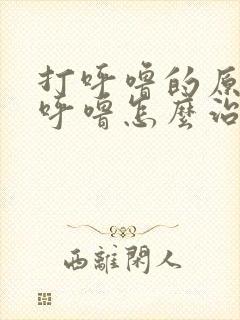 打呼噜的原
呼噜怎麼治
西離閑人